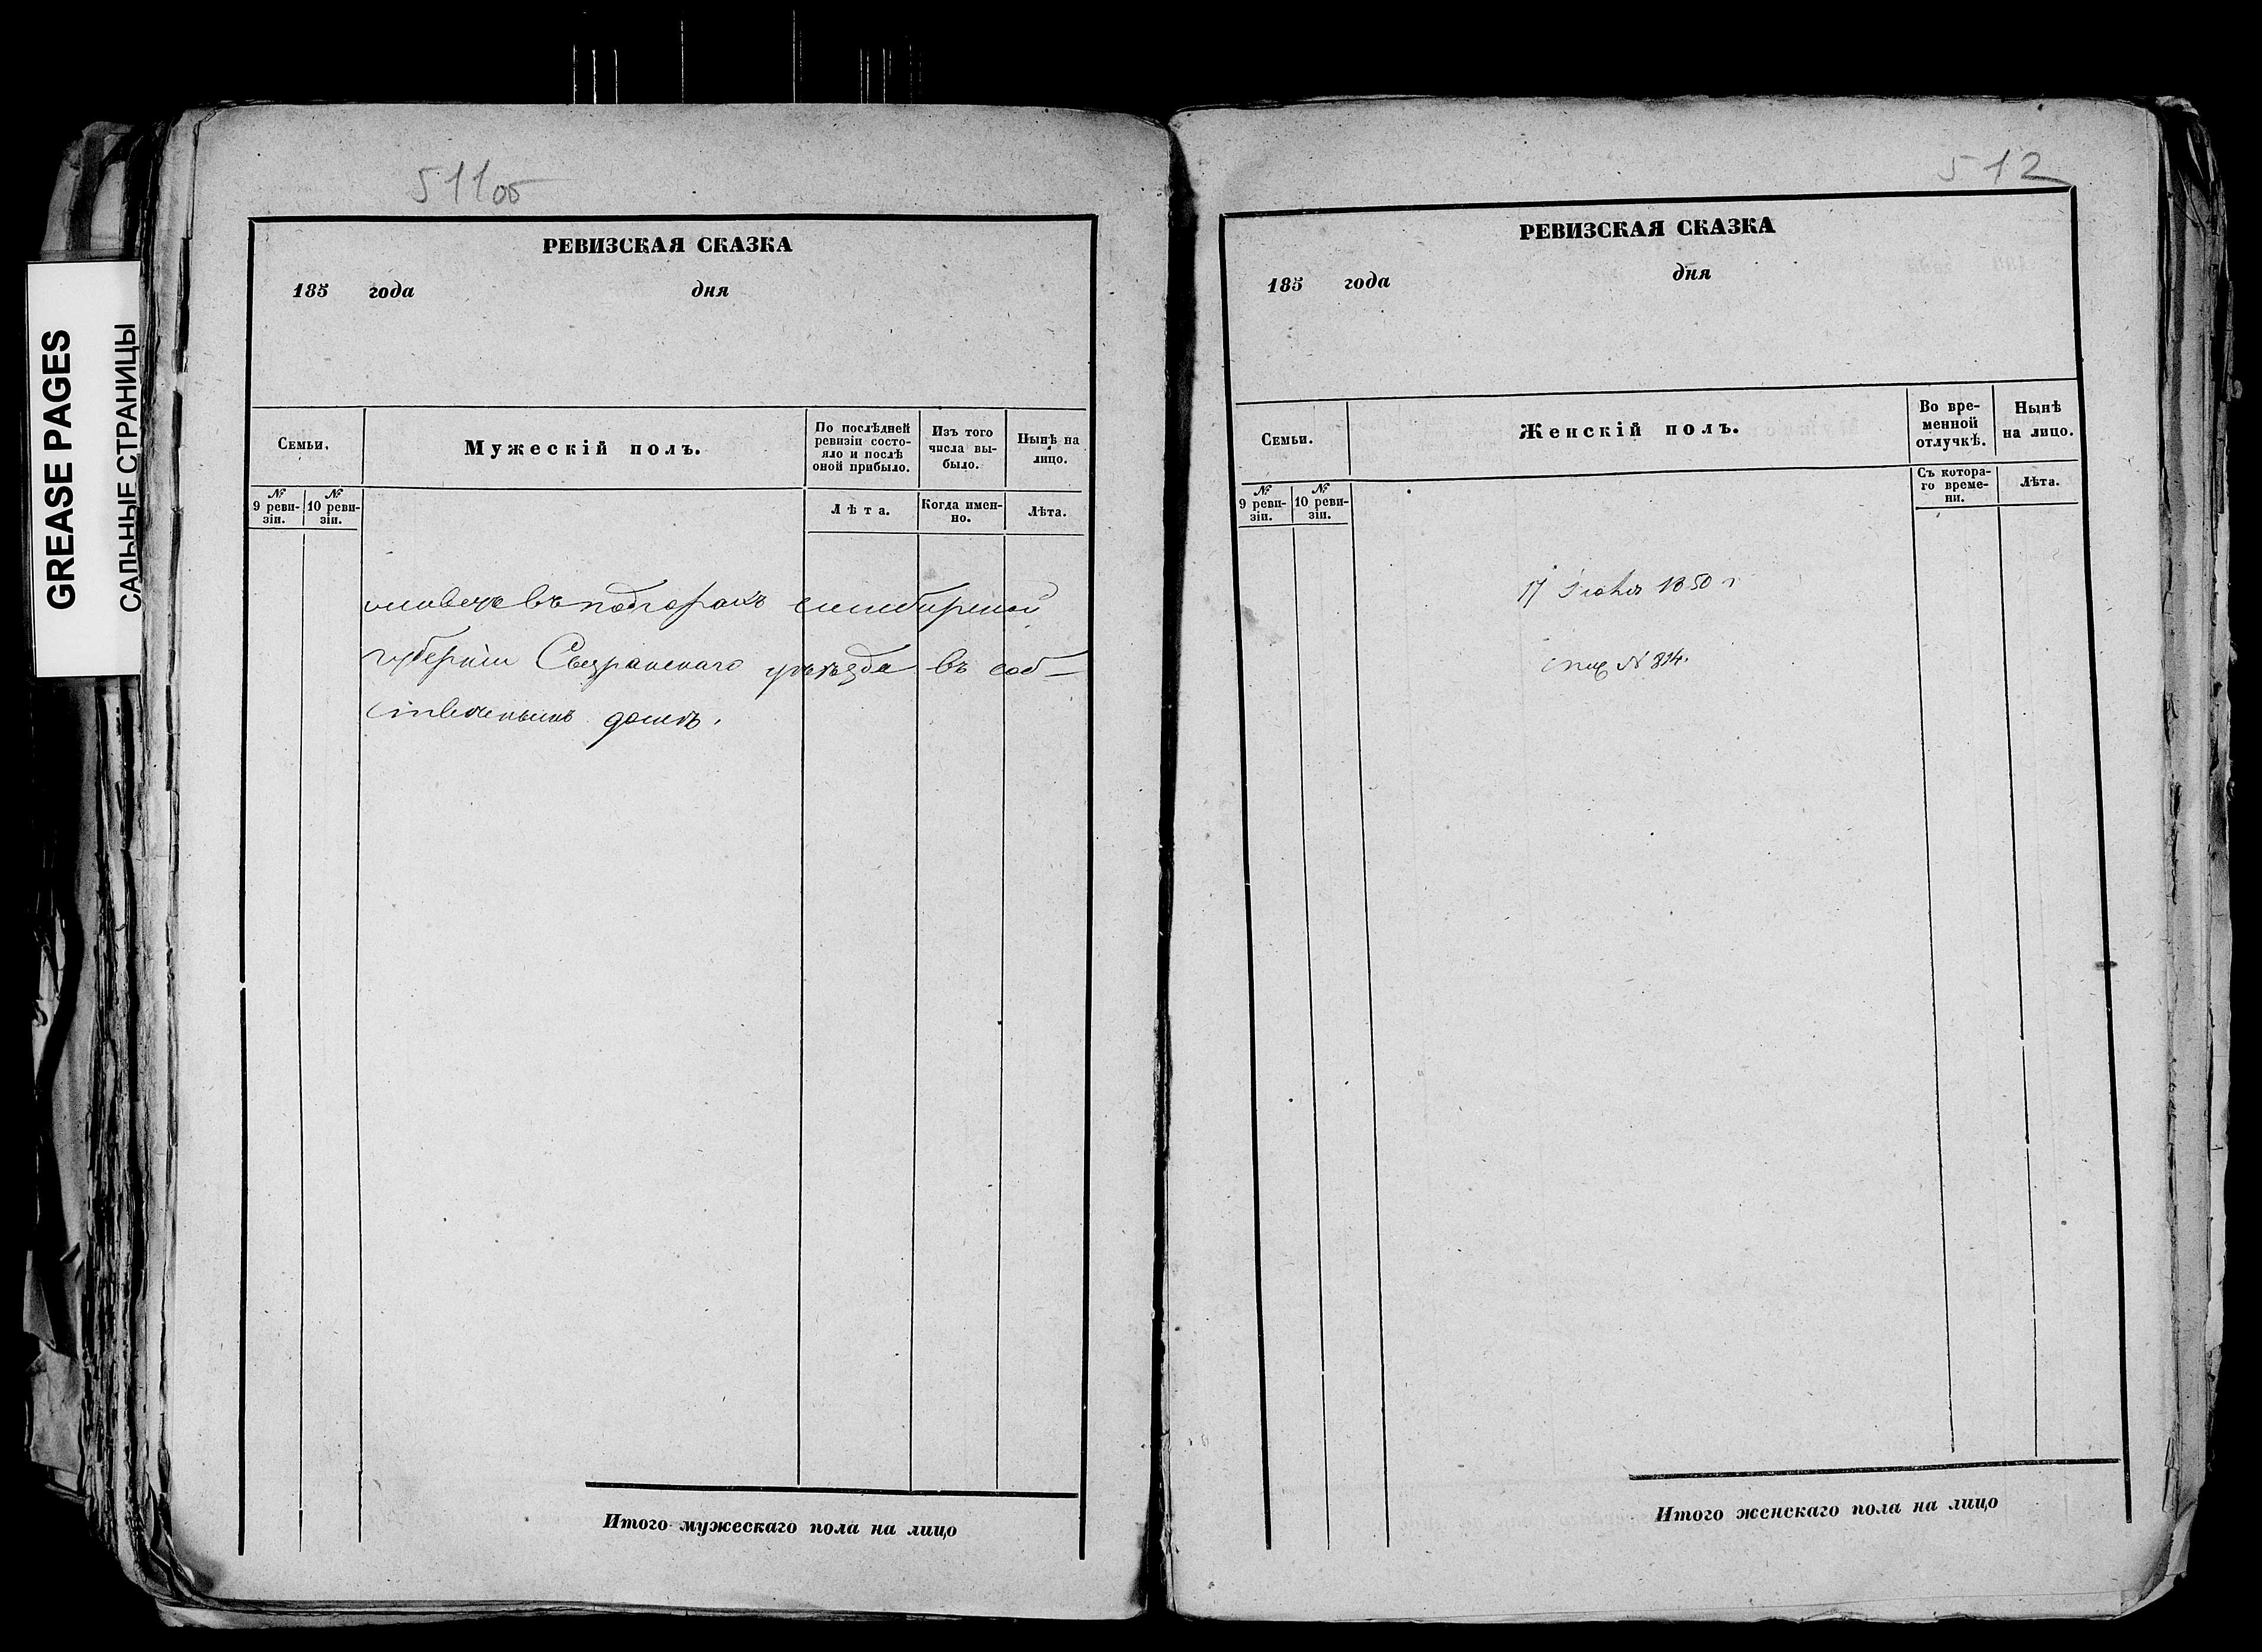 GREASE PAGES
САЛЬНЫЕ СТРАНИЦЫ
511об
РЕВИЗСКАЯ СКАЗКА
185 года дня
Семьи.
Мужескій полъ.
По послѣдней ревизіи состо-
яло и послѣ оной прибыло.
Изъ того числа вы-
было.
Нынѣ на лицо.
№ 9 реви-
зіи.
№ 10 реви-
зіи.
Лѣта.
Когда имен-
но.
Лѣта.
въ симбирской
губерніи Сызранскаго уѣзда въ соб-
ственнымъ домъ.
Итого мужескаго пола на лицо
512
РЕВИЗСКАЯ СКАЗКА
185 года дня
Семьи.
Женскій полъ.
Во вре-
менной
отлучкѣ.
Нынѣ
на лицо.
№ 9 реви-
зіи.
№ 10 реви-
зіи.
Съ котора-
го време-
ни.
Лѣта.
17 1850 г
№ 814.
Итого женскаго пола на лицо